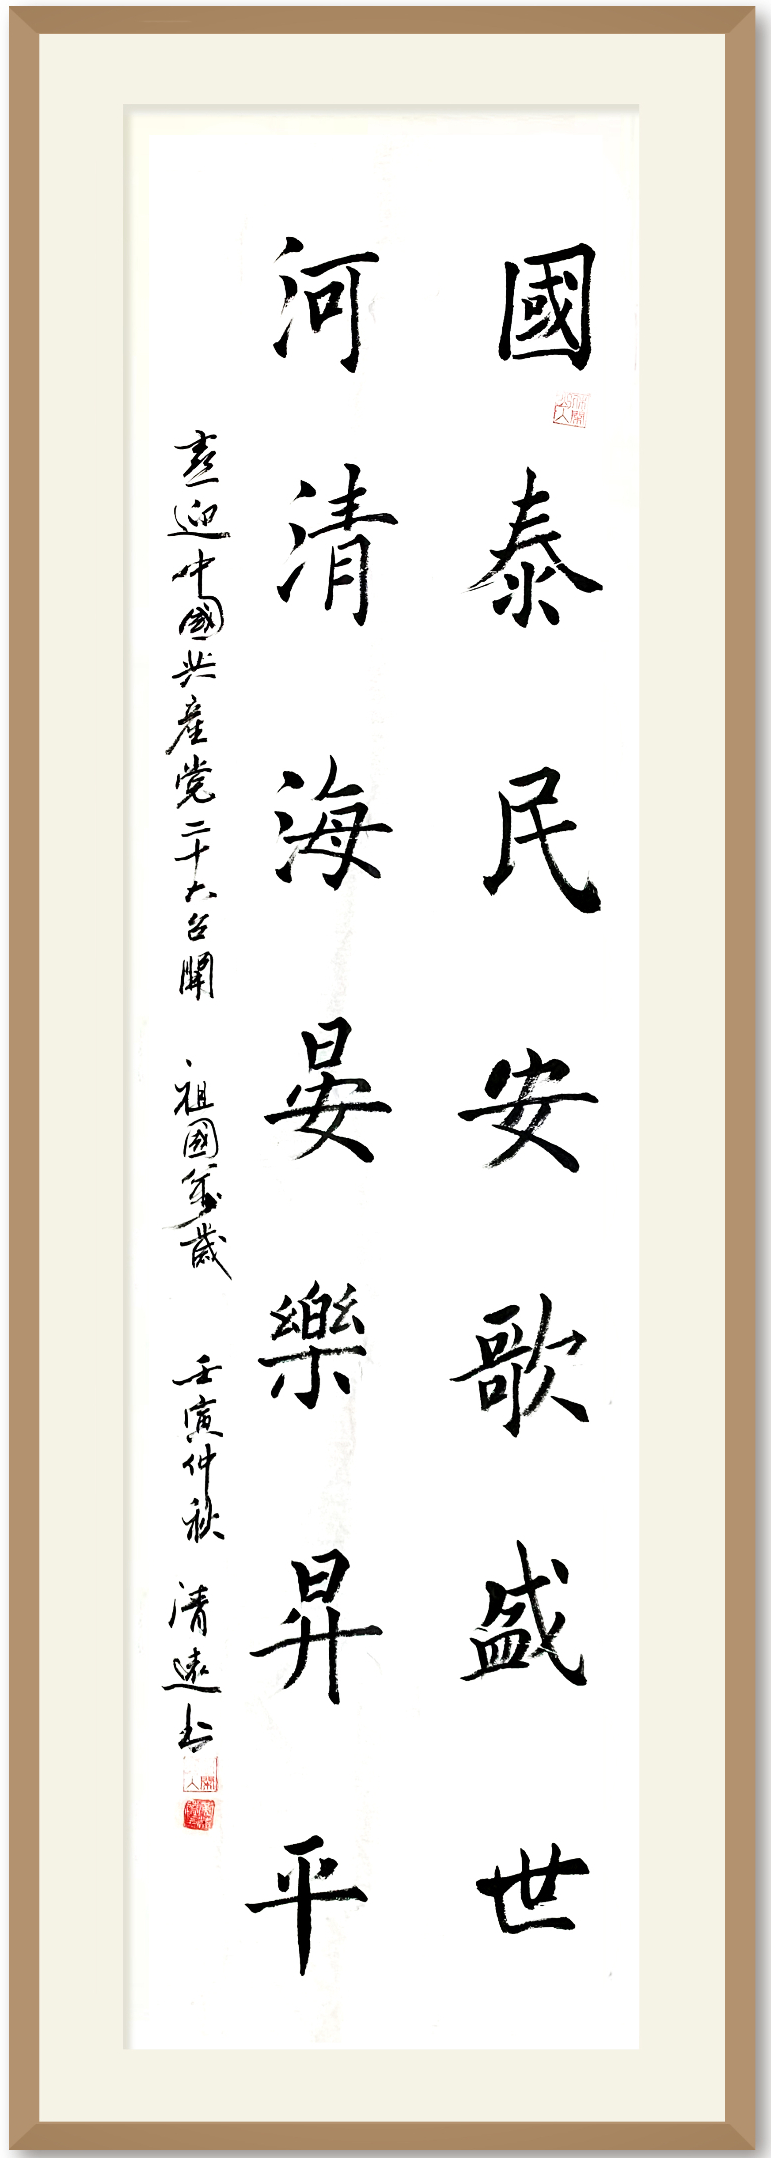 國泰民安歌盛世
河清海晏樂昇平
喜迎中國共産党二十大召開 祖國萬歲 壬寅仲秋 清遠书